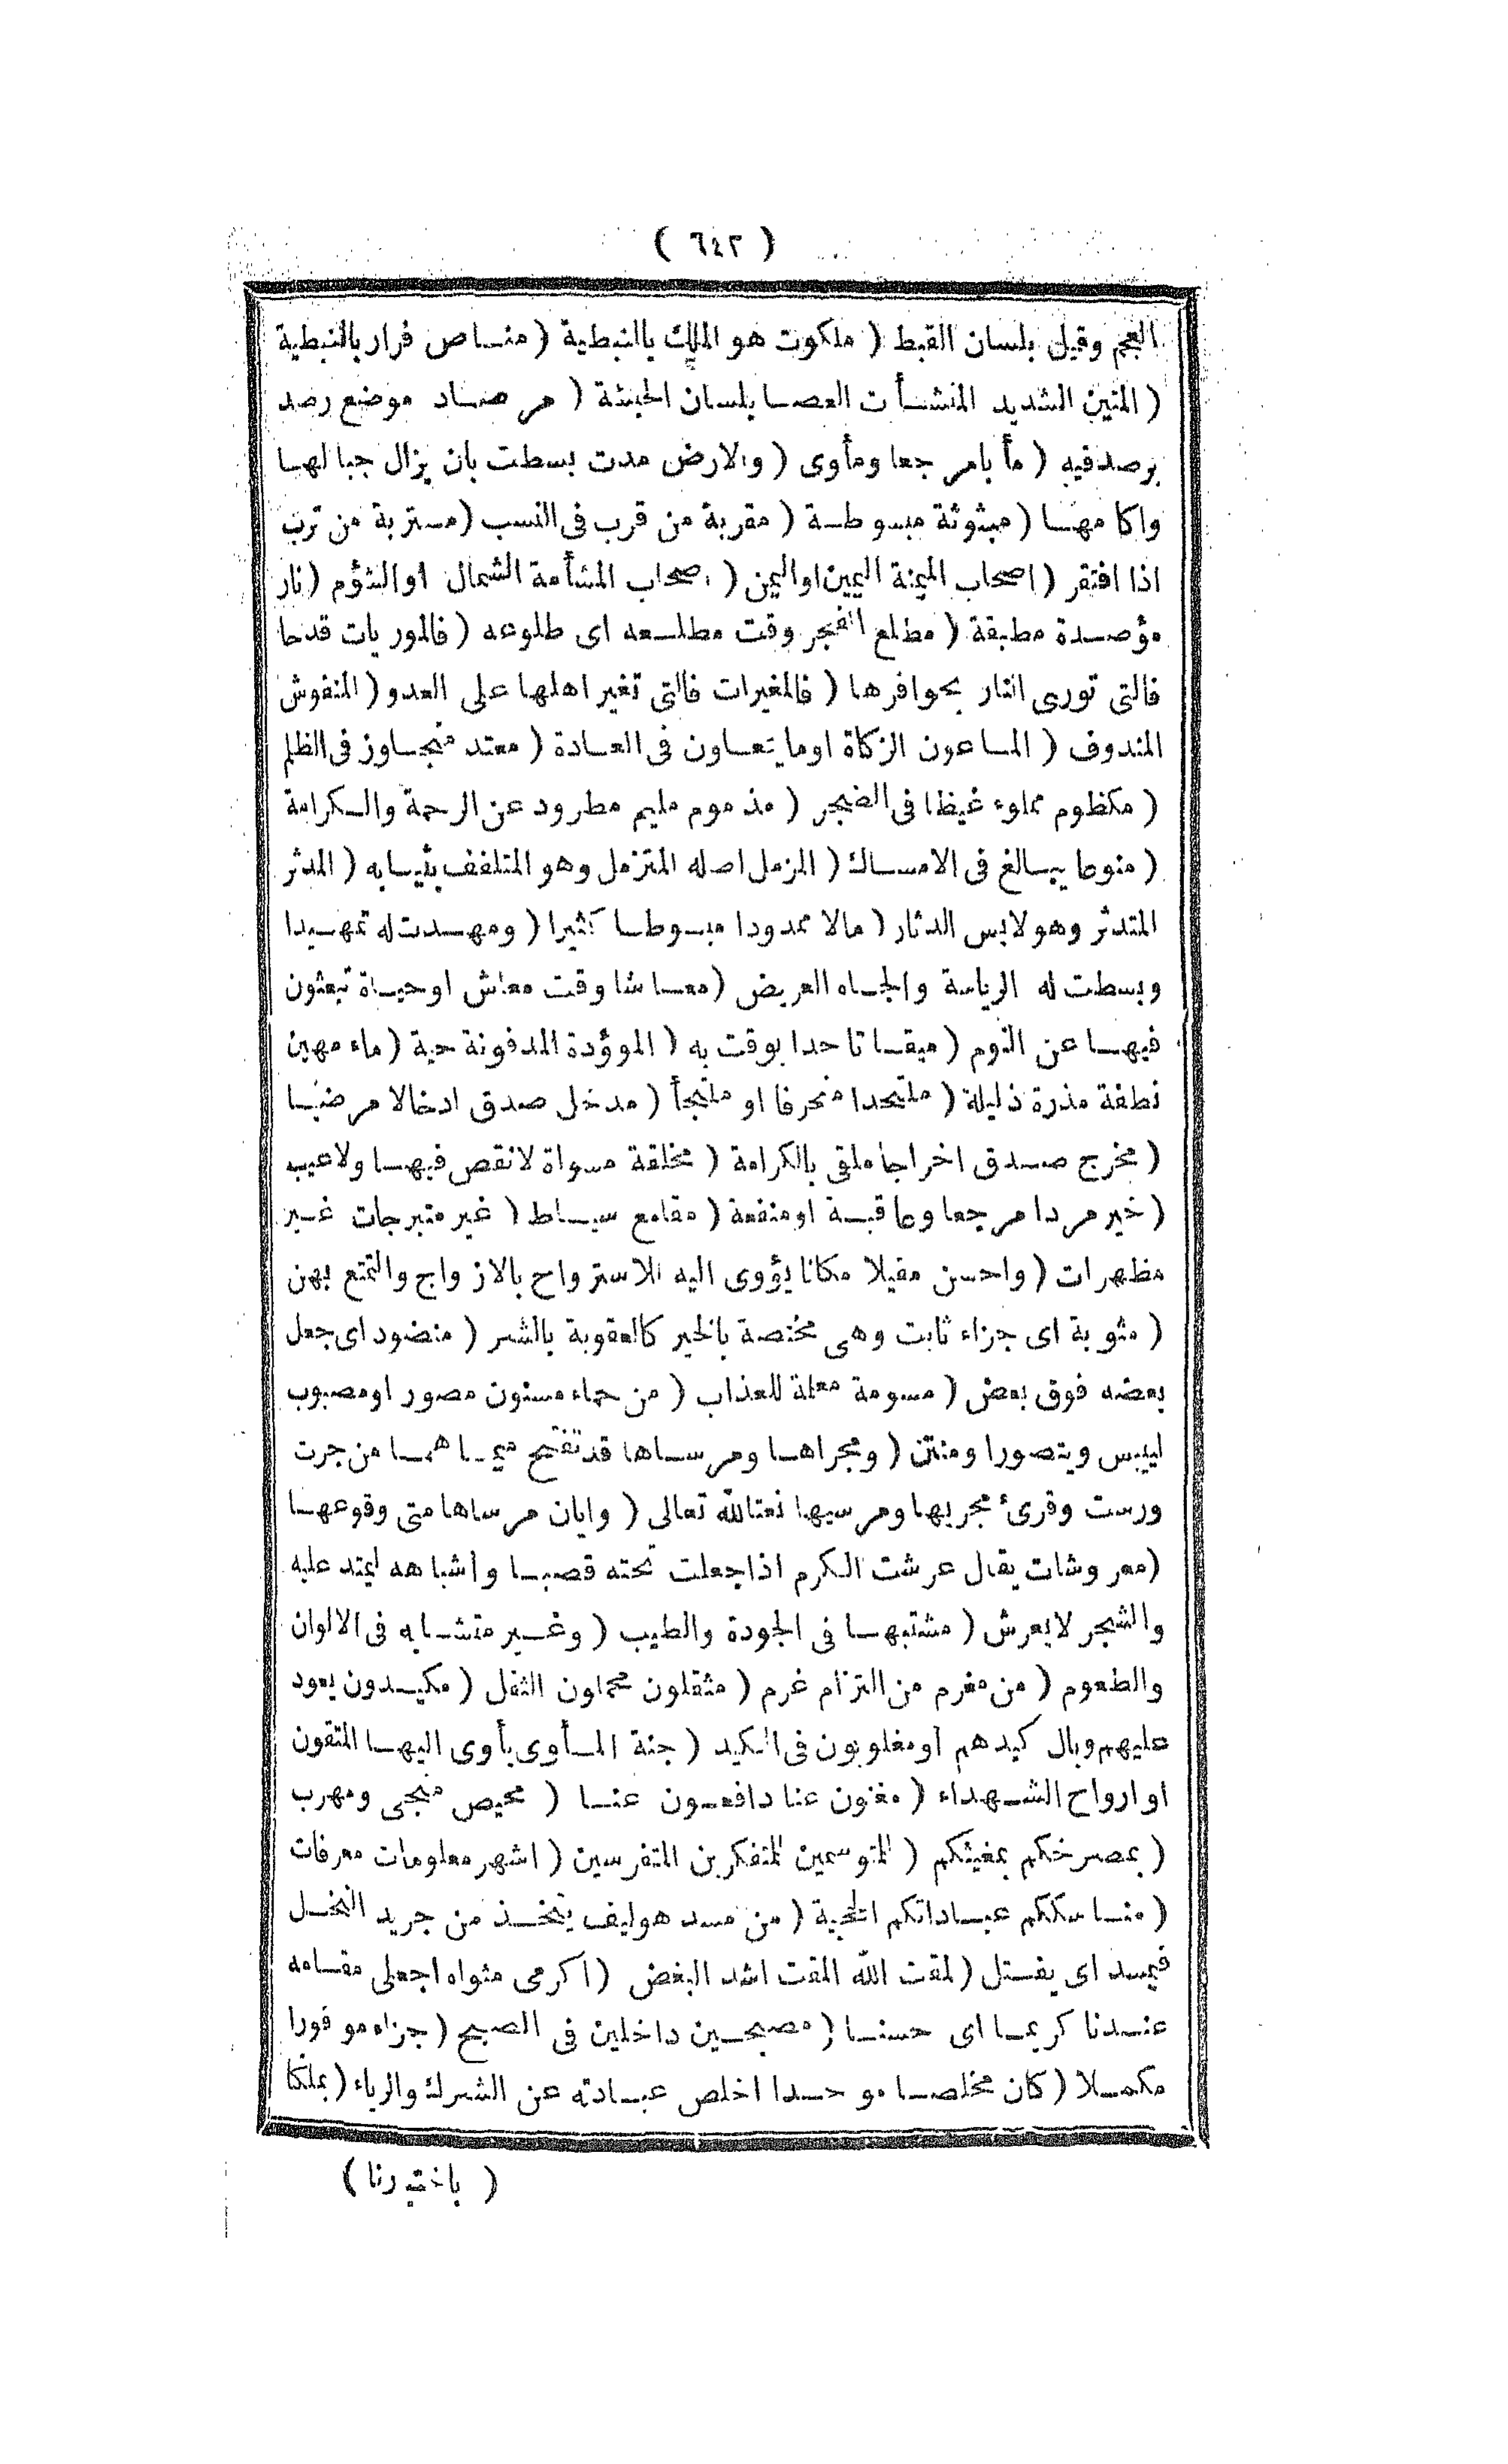 ( ٦٤٢ )
العجم وقيل بلسان القبط ( ملكوت هو الملك بالنبطية ( مناص فرار بالنبطية
( المتين الشديد المنشأت العصا بلسان الحبشة ( مرصاد موضع رصد
يرصد فيه ( مأبا مرجعا ومأوى ( والارض مدت بسطت بان يزال جبالها
واكامها ( مبثوثة مبسوطة ( مقربة من قرب فى النسب ( متربة من ترب
اذا افتقر ( اصحاب الميمنة اليمين او اليمن ( اصحاب المشأمة الشمال او الشؤم ( نار
مؤصدة مطبقة ( مطلع الفجر وقت مطلعه اى طلوعه ( فالموريات قدحا
فالتى تورى النار بحوافرها ( فالمغيرات فالتى تغير اهلها على العدو ( المنفوش
المندوف ( الماعون الزكاة اوما يتعاون فى العادة ( معتد متجاوز فى الظلم
( مكظوم مملوء غيظا فى الضجر ( مذموم مليم مطرود عن الرحمة والكرامة
( منوعا يبالغ فى الامساك ( المزمل اصله المتزمل وهو المتلفف بثيابه ( المدثر
المتدثر وهو لابس الدثار ( مالا ممدودا مبسوطا كثيرا ( ومهدت له تمهيدا
وبسطت له الرياسة والجاه العريض ( معاشا وقت معاش او حياة تبعثون
فيها عن النوم ( ميقاتا حدا يوقت به ( الموؤدة المدفونة حية ( ماء مهين
نطفة مذرة ذليلة ( ملتحدا منحرفا او ملتجأ ( مدخل صدق ادخالا مرضيا
( مخرج صدق اخراجا ملقى بالكرامة ( مخلقة مسواة لانقص فيها ولاعيب
( خير مردا مرجعا وعاقبة او منفعة ( مقامع سياط ( غير متبرجات غير
مظهرات ( واحسن مقيلا مكانا يؤوى اليه للاسترواح بالازواج والتمتع بهن
( مثوبة اى جزاء ثابت وهى مختصة بالخير كالعقوبة بالشر ( منضود اى جعل
بعضه فوق بعض ( مسومة معلمة للعذاب ( من حماء مسنون مصور او مصبوب
لييبس ويتصور او منتن ( ومجراها ومرساها قد تفتح ميماهما من جرت
ورست وقرئ مجريها ومرسيها نعتا لله تعالى ( وايان مرساها متى وقوعها
( معروشات يقال عرشت الكرم اذا جعلت تحته قصبا واشباهه ليمتد عليه
والشجر لايعرش ( مشتبها فى الجودة والطيب ( وغير متشابه فى الالوان
والطعوم ( من مغرم من التزام غرم ( مثقلون محملون الثقل ( مكيدون يعود
عليهم وبال كيدهم او مغلوبون فى الكيد ( جنة المأوى يأوى اليها المتقون
او ارواح الشهداء ( مغنون عنا دافعون عنا ( محيص منجى ومهرب
( بمصرخكم بمغيثكم ( للمتوسمين للمتفكرين المتفرسين ( اشهر معلومات معرفات
( مناسككم عباداتكم الحجية ( من مسد هوليف يتخذ من جريد النخل
فيمسد اى يفتل ( لمقت الله المقت اشد البغض ( اكرمى مثواه اجعلى مقامه
عندنا كريما اى حسنا ( مصبحين داخلين فى الصبح ( جزاء موفورا
مكملا ( كان مخلصا موحدا اخلص عبادته عن الشرك والرياء ( بملكنا
( باختيارنا )